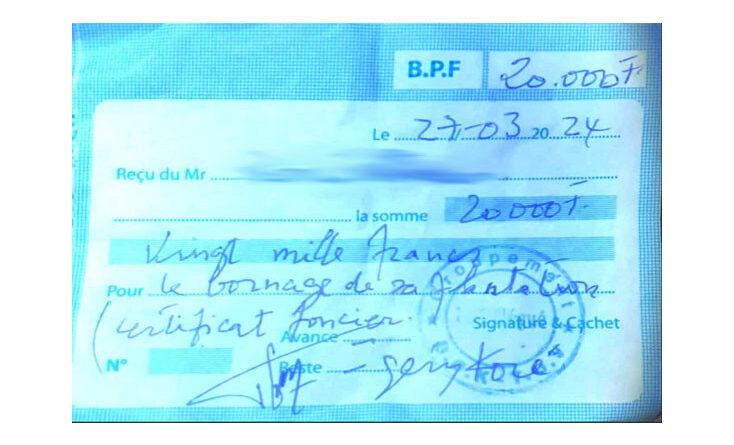 B.P.F 20.000F
Le 27-03 2024
Reçu du Mr
la somme 20000F
Vingt mille francs
Pour le bornage de sa plantation
(certificat foncier.
Avance
Signature & Cachet
N°
Reste